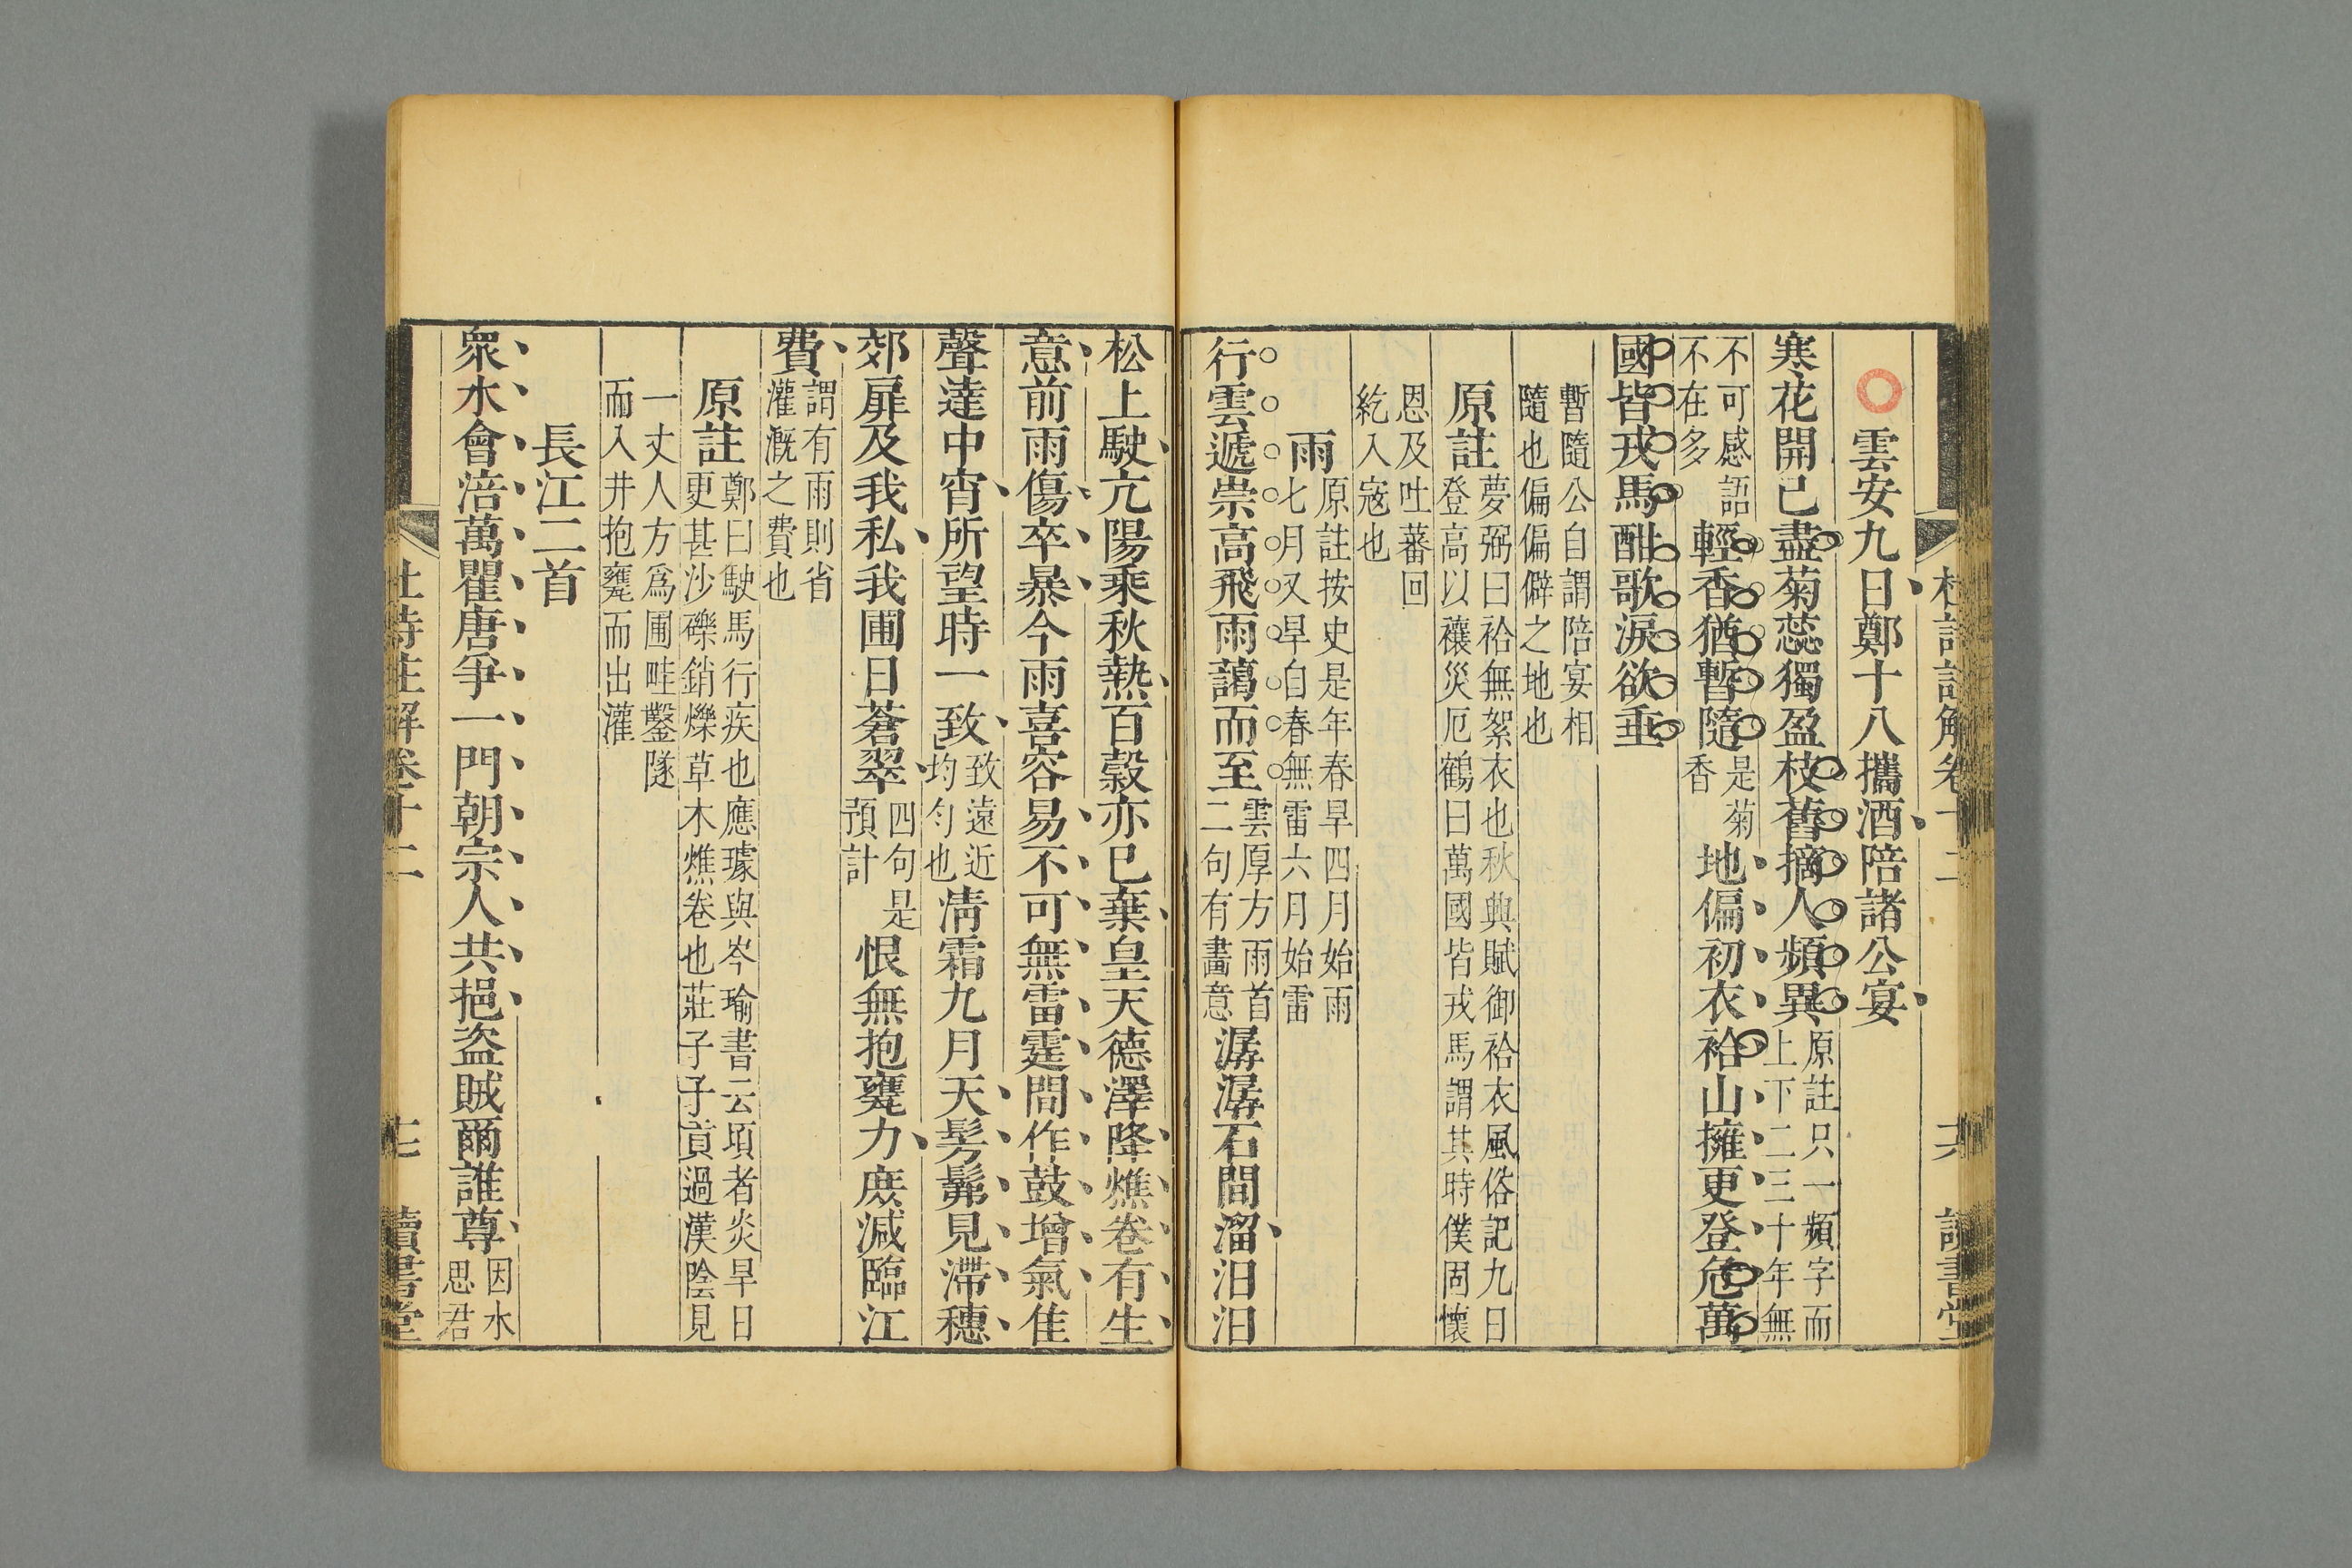 雲安九日鄭十八攜酒陪諸公宴
寒花開已盡菊蕊獨盈枝舊摘人頻異原註只一頻字而上下二三十年無
不可感話不在多輕香猶暫隨是菊香地偏初衣袷山擁更登危萬
國皆戎馬酣歌淚欲垂
暫隨公自謂陪宴相隨也偏偏僻之地也
原註夢弼曰袷無絮衣也秋興賦御袷衣風俗記九日登高以禳災厄鶴曰萬國皆戎馬謂其時僕固懷
恩及吐蕃回紇入寇也
雨原註按史是年春旱四月始雨七月又旱自春無雷六月始雷
行雲遞崇高飛雨藹而至雲厚方雨首二句有畵意潺潺石間溜汨汨
松上駛亢陽乘秋熱百穀亦已棄皇天德澤降燋卷有生
意前雨傷卒暴今雨喜容易不可無雷霆間作鼓增氣隹
聲達中宵所望時一致致遠近均勻也淸霜九月天髣髴見滯穗
郊扉及我私我圃日蒼翠四句是預計恨無抱甕力庶減臨江
費謂有雨則省灌溉之費也
原註鄭曰駛馬行疾也應璩與岑瑜書云頃者炎旱日更甚沙礫銷爍草木燋卷也莊子子貢過漢陰見
一丈人方爲圃畦鑿隧而入井抱甕而出灌
長江二首
衆水會涪萬瞿唐爭一門朝宗人共挹盜賊爾誰尊因水思君
杜詩註解卷十二 十七 讀書堂